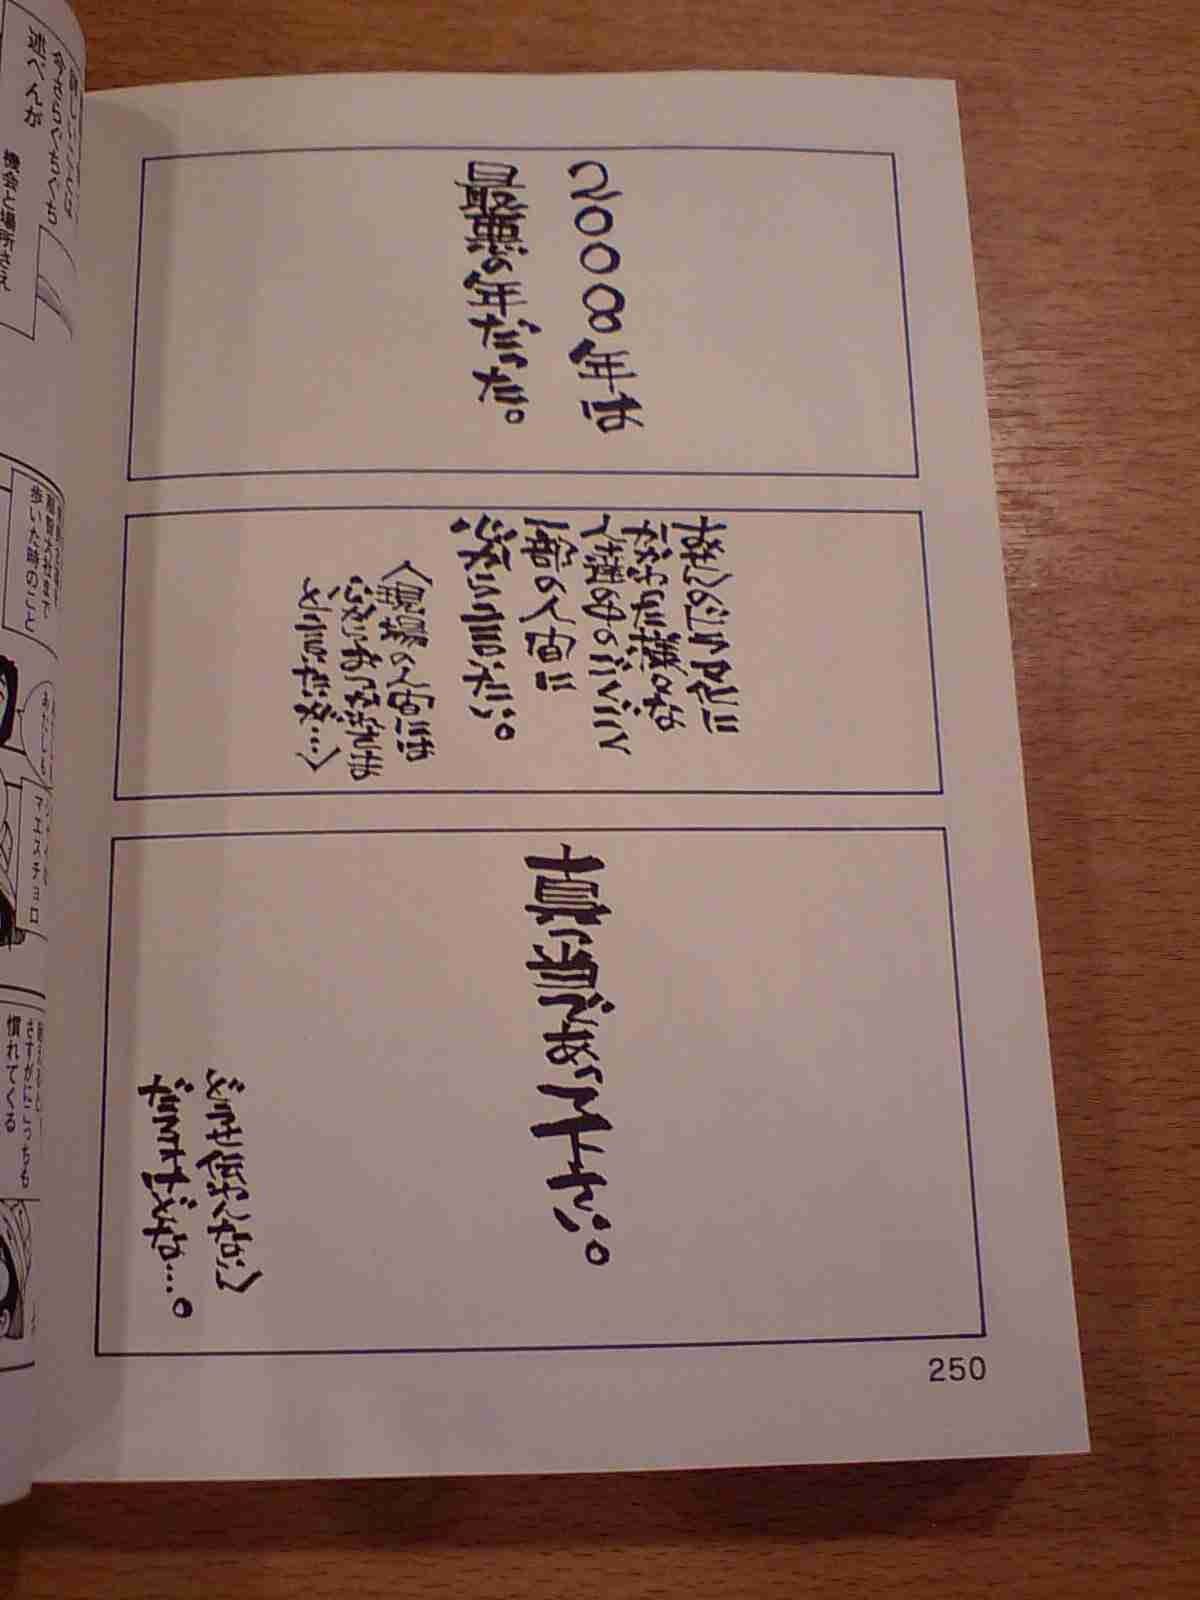 2008年は
最悪の年だった。
おせんのドラマ化に
かかわった様々な
人達の中のごくごく
一部の人間に
心から言いたい。
(現場の人間には
心からおつかれさま
と言いたいが…)
真っ当であって下さい。
どうせ伝わんない
だろうけどな…。
250
今さらぐちぐち
述べんが
機会と場所さえ
歩いた時のこと
マエスチョロ
さすがにこっちも
慣れてくる